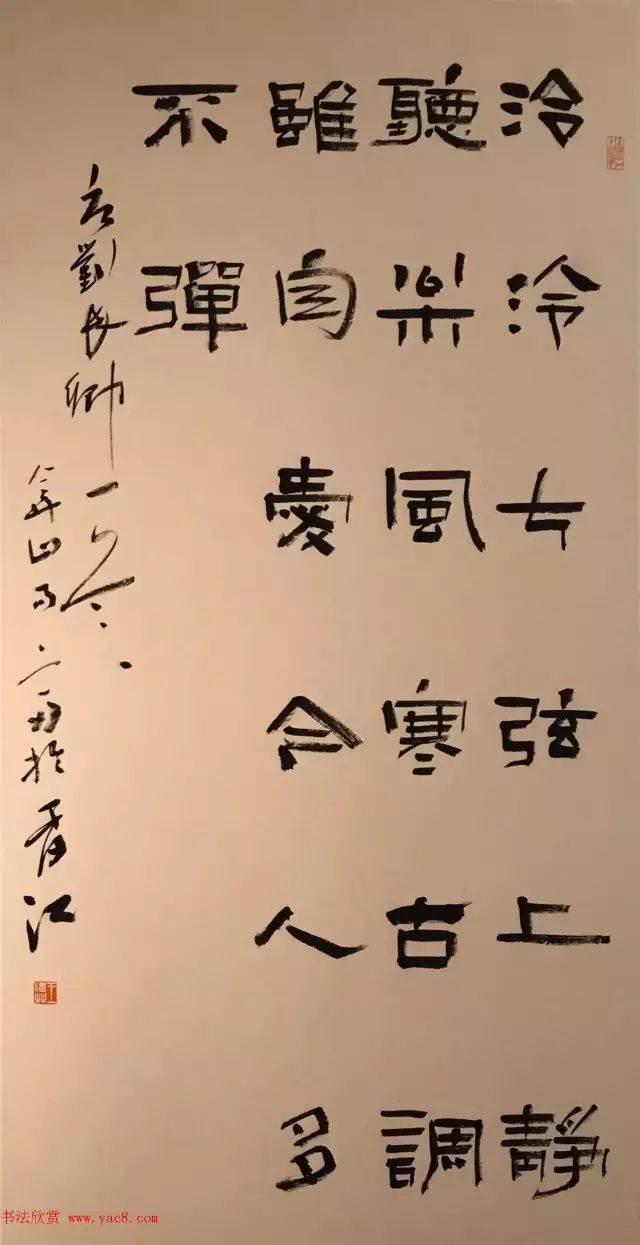 泠泠七弦上靜
聽松風寒古調
雖自愛今人多
不彈
右劉長卿一
於香江
书法欣赏 www.yac8.com